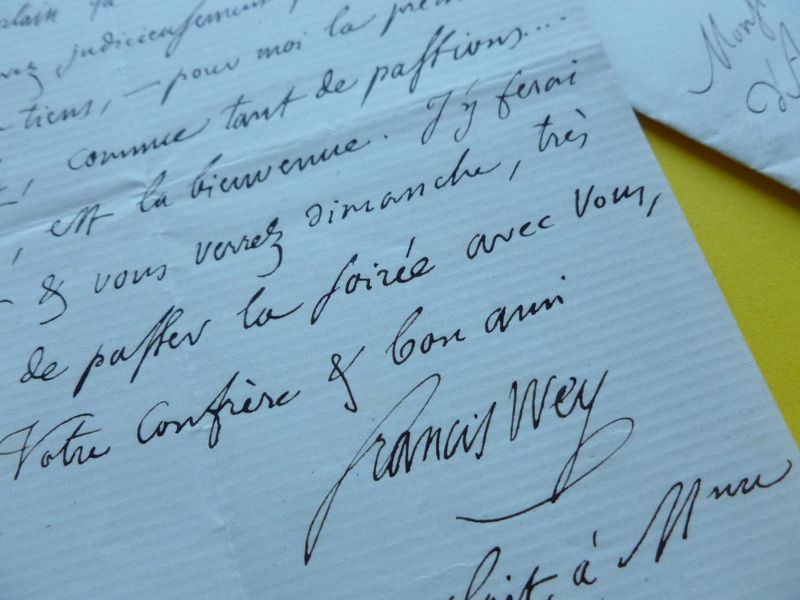 judicieusement
tiens, — pour moi la
comme tant de passions....
est la bienvenue. J'y ferai
& vous verrez dimanche, très
de passer la soirée avec vous,
Votre Confrère & bon ami
Francis Wey
à Mme
Mons